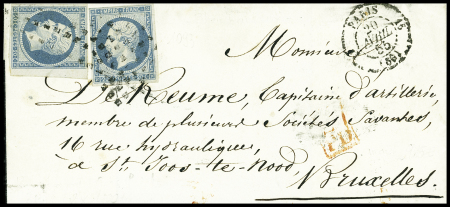 EMPIRE FRANC
PARIS
20
AVRIL
55
Monsieur
De Reume, Capitaine d'artillerie,
membre de plusieurs Sociétés Savantes,
16 rue hydraulique,
à St Joos-te-Nood,
PD
Bruxelles.